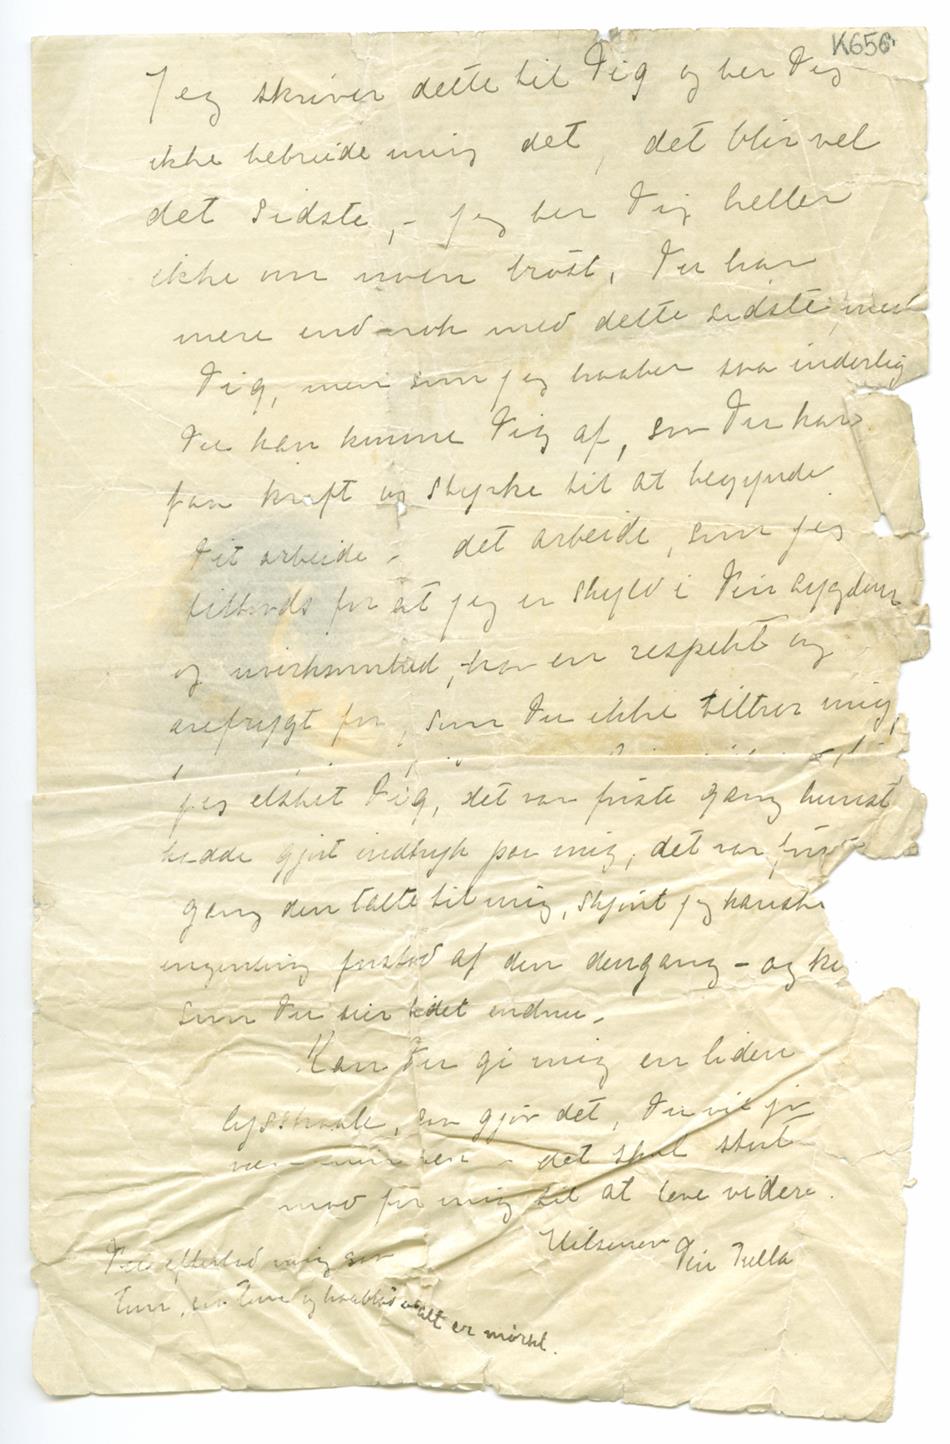 K656
Jeg skriver dette til Dig og ber Dig
ikke bebreide mig det, det blir vel
det sidste, - jeg ber Dig heller
ikke om noen trøst, Du har
mere end nok med dette sidste, med
Dig, men som jeg haaber saa inderlig
Du kan komme Dig af, saa Du kan
faa kraft og styrke til at begynde
Dit arbeide - det arbeide, som jeg
tiltrods for at jeg er skyld i Din sygdom
og uvirksomhed, har en respekt og
ærefrygt for, som Du ikke tiltror mig,
jeg elsket Dig, det var første gang kunst
hadde gjort indtryk paa mig, det var første
gang den talte til mig, skjønt jeg kanske
ingenting forstod af den dengang - og
som Du sier det endnu.
Kan Du gi mig en liden
lysstraale, saa gjør det, Du vil jo
være min ven - det skal stort
mod for mig til at leve videre.
Hilsener
Din Tulla
Du efterlod mig saa
tom, saa tom og haabløs at alt er mørkt.